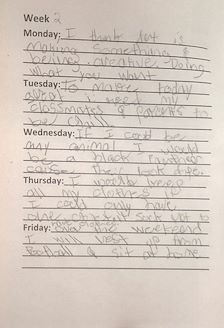 Week 2
Monday: I think Art is
making something &
being creative. Doing
what you want
Tuesday: To make today
great I need my
classmates & parents to
be chill
Wednesday: If I could be
my animal I would
be a black Panther
cause they look
Thursday: I would keep
all my clothes if
I could only have
one
Friday: weekend
I will rest up from
Football & sit at home